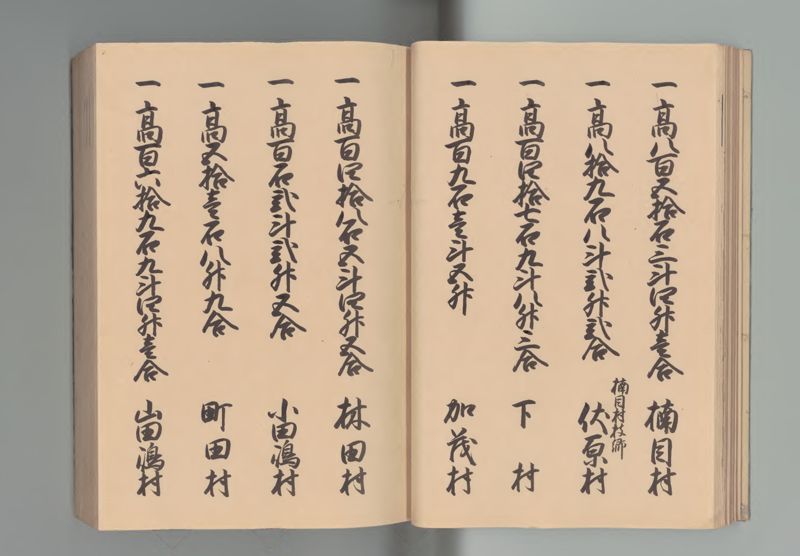 一高八百五拾石三斗四升壱合 楠目村
一高八拾九石八斗弐升弐合 楠目村枝郷 伏原村
一高百四拾七石九斗八升三合 下村
一高百九石壱斗五升 加茂村
一高百四拾八石五斗四升五合 林田村
一高百石弐斗弐升五合 小田鴻村
一高五拾壱石八升九合 町田村
一高百六拾九石九斗四升壱合 山田鴻村